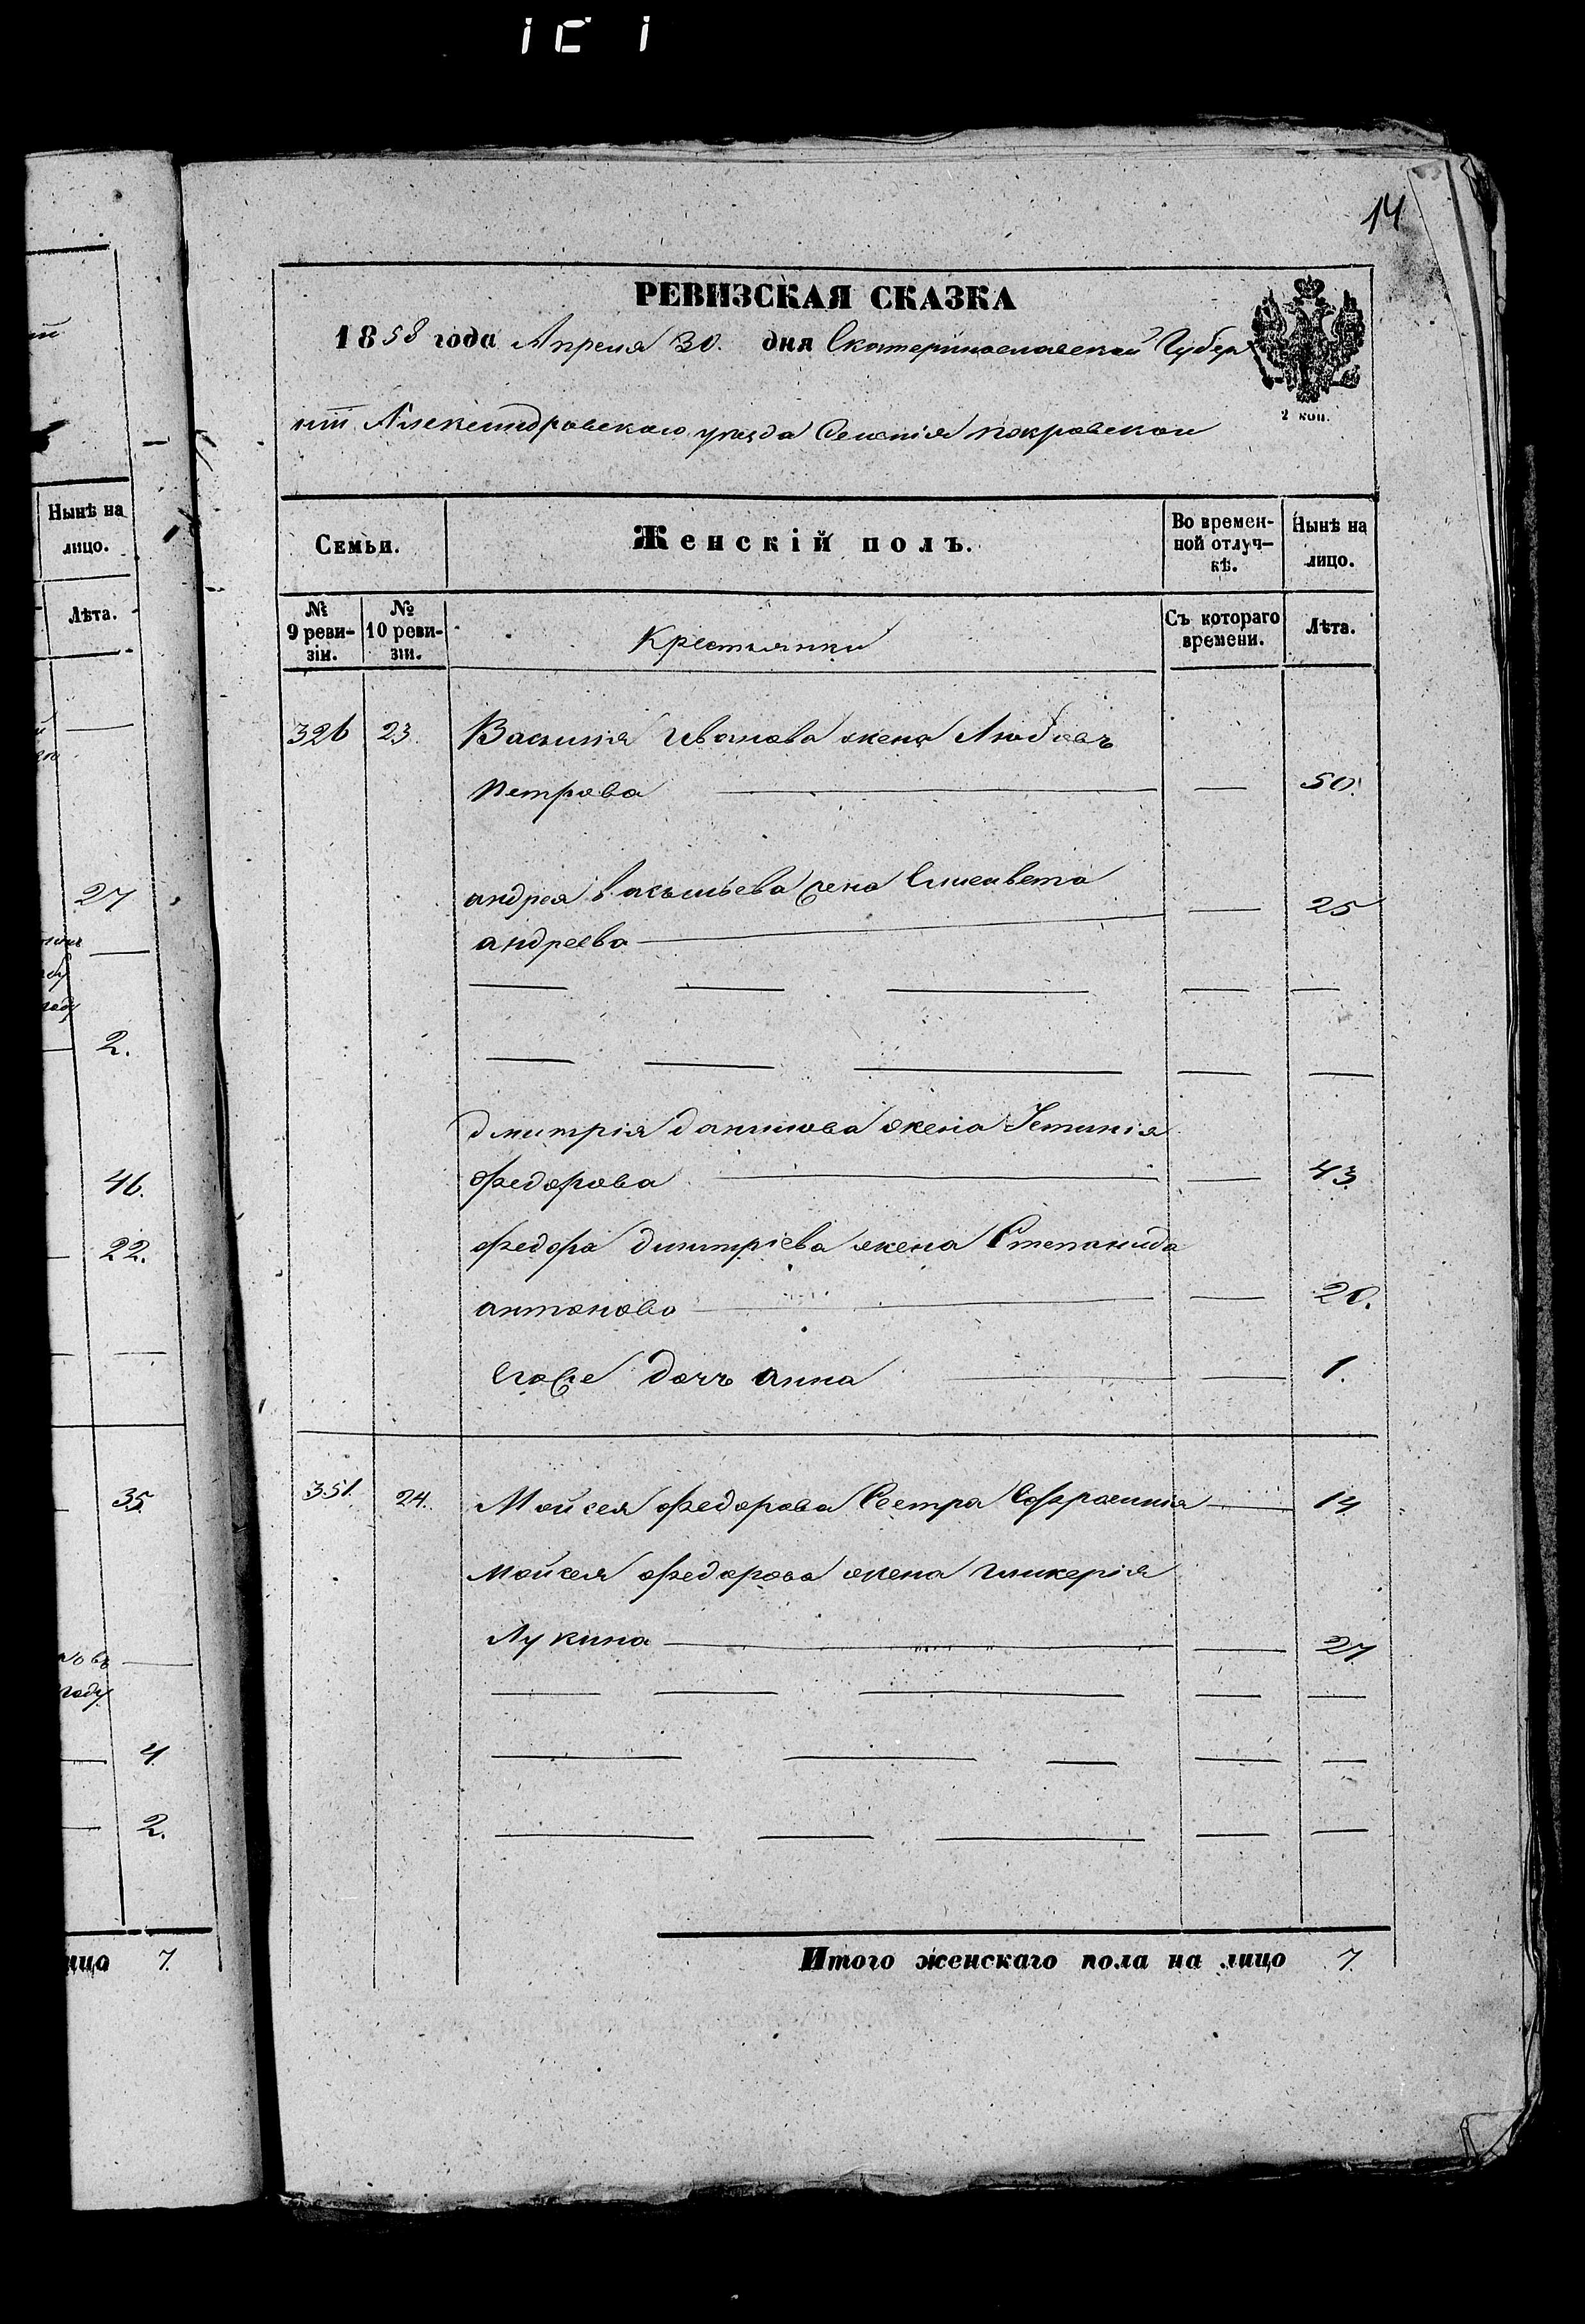 14
РЕВИЗСКАЯ СКАЗКА
1858 года Апреля 30. дня Екатеринославской Губер
ніи Александровскаго уезда Селенія покровскои
2 коп.
Семьи.
Женскій полъ.
Во времен-
ной отлуч-
кѣ.
Нынѣ на
лицо.
№
9 реви-
зіи.
№
10 реви-
зіи.
Крестьянки
Съ котораго
времени.
Лѣта.
326 23. Василия Иванова жена Любовь
петрова — 50.
андрея васильева жена Елисавета
андреева — 25
дмитрія данилова жена Устинія
федорова — 43.
федора дмитріева жена Степанида
антонова — 20.
Егоже дочь анна — 1.
351. 24. Мойсея федорова Сестра Ефросинія — 14
мойсея федорова жена гликерія
Лукина — 27
Итого женскаго пола на лицо 7.
Нынѣ на
лицо.
Лѣта.
27
2.
46.
22.
35
году
4.
2.
7.